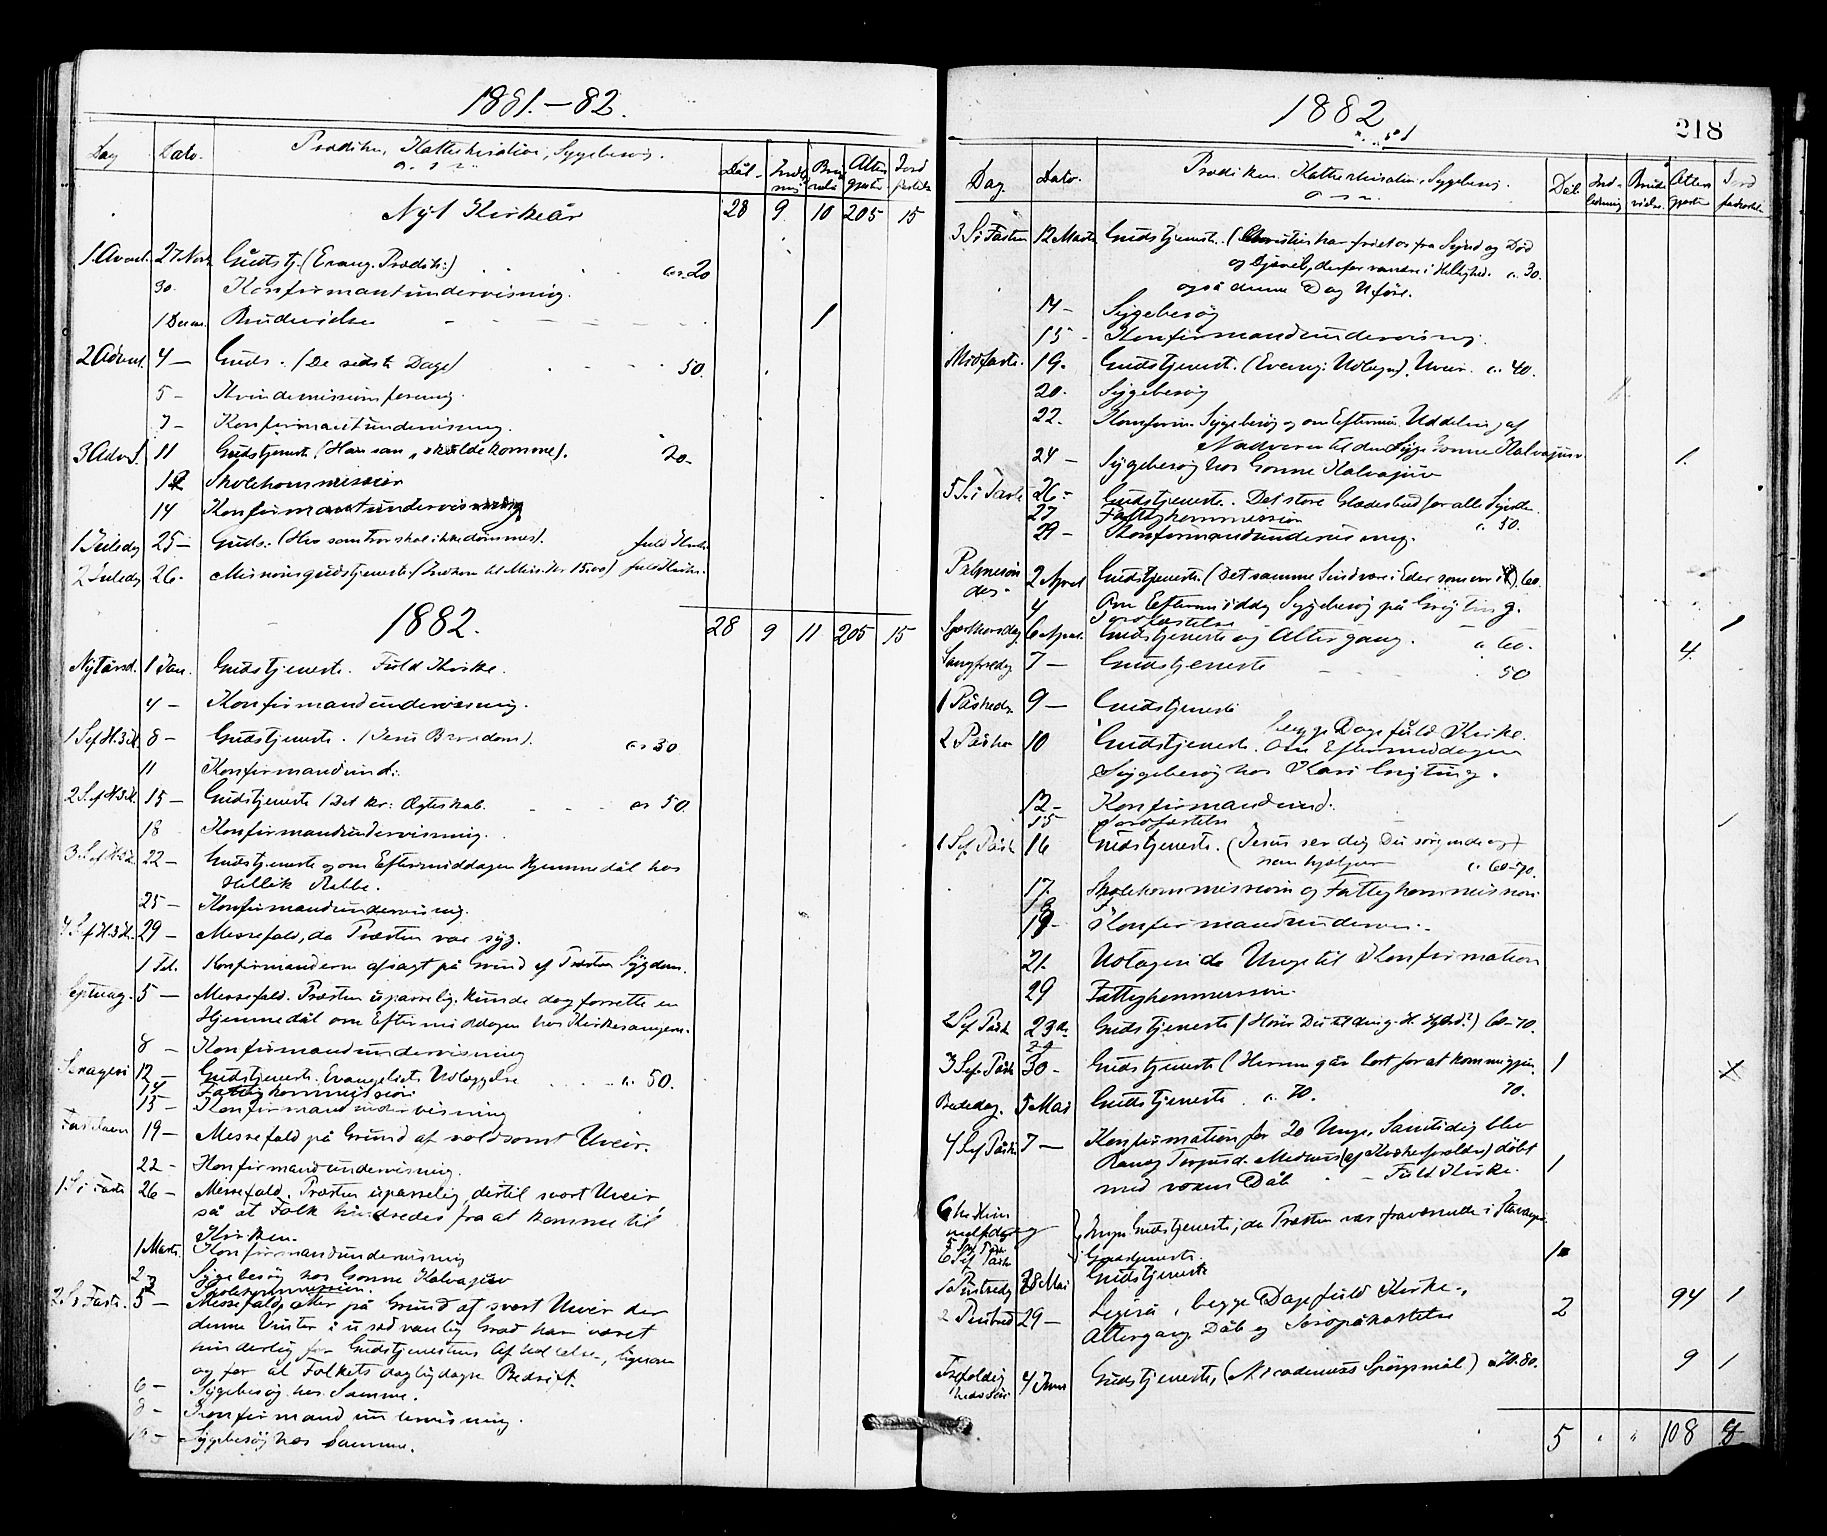 1881.-82.
Dag Dato. Prædiken, Katekisation, Sygebesøg. Dåb Brude Alters Jord
o. s. v.
Nyt Kirkeår 28 9 10 205 15
1 Advent 27 Novb. Gudstj. (Evang. Prædik:) ca. 20
30. Konfirmantundervisning.
1 Decm. Brudevielse 1
2 Advent. 4 — Guds. (De sidste Dage) 50.
5 — Kvindemissionsforenig.
7 — Konfirmantundervisning.
3 Advt. 11 Gudstjeneste (Han som "skulde komme). 20-
12 Skolekommission
14 Konfirmantundervisning
1 Juledag 25 — Guds. (Hvo som tror skal ikke dømmes). fuld Kirke
2 Juledag 26. Missionsgudstjeneste (Indkom til Miss. Kr 15.00) fuld Kirke.
1882. 28 9 11 205 15
Nytårsd. 1 Jan. Gudstjeneste. Fuld Kirke.
4 — Konfirmandundervisning.
1 S. ef. H. 3 K. 8 — Gudstjeneste. (Jesu Barndom). ca 30
11 Konfirmandund:.
2 S. ef H 3 K. 15 — Gudstjeneste (Det kr: Ægteskab. ca 50.
18 Konfirmandundervisning.
3 S. ef H 3 K. 22 — Gudstjeneste og om Eftermiddagen Hjemmedåb hos
Hellik
25 — Konfirmandundervisning.
4 S. ef H. 3 K. 29 — Messefald, da Præsten var syg.
1 Feb. Konfirmanderne afsagt på Grund af Præstens Sygdom.
Septuag. 5 — Messefald. Præsten upasselig, kunde dog forrette en
Hjemmedåb om Eftermiddagen hos Kirkesangeren.
8 — Konfirmandundervisning
12 — Gudstjeneste. Evangeliets Udlæggelse ca. 50.
14 Fattigkommission
15 — Konfirmandundervisning
Fastelavn 19 — Messefald på Grund af voldsomt Uveir.
22 — Konfirmandundervisning.
1 S i Faste 26 — Messefald. Præsten upasselig, dertil svært Uveir,
så at Folk hindredes fra at komme til
Kirken.
1 Marts. Konfirmandundervisning
2 — Sygebesøg hos Gonne Kalvajuv
3 Skolekommission.
2 S. i Faste. 5 — Messefald, på Grund af svært Uveir der
denne Vinter i usedvanlig Grad har været
hinderlig for Gudstjenestens Afholdelse, ligesom
og for al Folkets dagligdagse Bedrift.
6 — Sygebesøg hos Samme.
8 — Konfirmandundervisning.
Sygebesøg hos Samme.
1882
218
Dag. Dato. Prædiken. Katekisation, Sygebesøg. Dåb. Ind- ledning Brude vielse. Alters gjæster Jord
o. s. v.
3 S i Fasten 12 Marts Gudstjeneste. (Christus har friet os fra Synd og Død
og Djævel, derfor vandre i Hellighed. ca. 30.
også denne Dag Uføre.
14 — Sygebesøg
15 — Konfirmandundervisning.
Midfaste. 19. Gudstjenest. (Evang: Udlægn). Uveir. ca. 40.
20. Sygebesøg
22. Konfirm. Sygebesøg og om Efterm. Uddeling af
Nadveren til den Syge Gonne Kalvajuv
24 — Sygebesøg hos Gonne Kalvajuv 1.
5 S. i Faste 26 — Gudstjeneste. Det store Glædesbud for alle Syndere.
27 Fattigkommission ca. 50.
29 — Konfirmandundervisning.
Palmesøndag 2 April Gudstjeneste. (Det samme Sind være i Eder som var i ). 60.
4 Om Eftermiddag Sygebesøg på
Jordfæstelse 1
Skærtorsdag. 6 April. Gudstjeneste og Altergang. ca. 60. 4.
Langfredag 7 — Gudstjeneste 50
1 Påskedag 9 — Gudstjeneste
begge Dage fuld Kirke.
2 Påske 10 Gudstjeneste. Om Eftermiddagen
Sygebesøg hos Kari
12 — Konfirmandund.
15 Jordfæstelse 1
1 S ef Påsk 16 Gudstjeneste. (Jesus ser dig Du sørgende og)
ca. 60-70.
17. Skolekommission og Fattigkommission
19 — Konfirmandunderv.
21. Udtagen de Unge til Konfirmation
29 Fattigkommission.
2 S ef Påsk 23de Gudstjeneste 60-70.
3 S ef Påsk 30 — Gudstjeneste (Herren går bort for at komme igjen. 1
Bededag. 5 Mai Gudstjeneste. ca. 70. 70.
4 S ef Påsk. 7 — Konfirmation for 20 Unge, Samtidig blev
(af Kvækerforældre) døbt
med voxen Dåb — Fuld Kirke. 1
Chr. Him
melfdag
5 S ef Påsk } Ingen Gudstjeneste, da Præsten var fraværende i Stavanger.
6 S ef Påsk Gudstjeneste. 1
1 Pintsedg 28 Mai Gudstjeneste
2 Pintsed 29 — Ligeså, begge Dage fuld Kirke.
Altergang Dåb og Jordpåkastelse 2 94 1
Trefoldig
heds Søn 4 Juni Gudstjeneste, (Nicodemus's Spørgsmål) ca 70-80. 9 1
5 " " 108